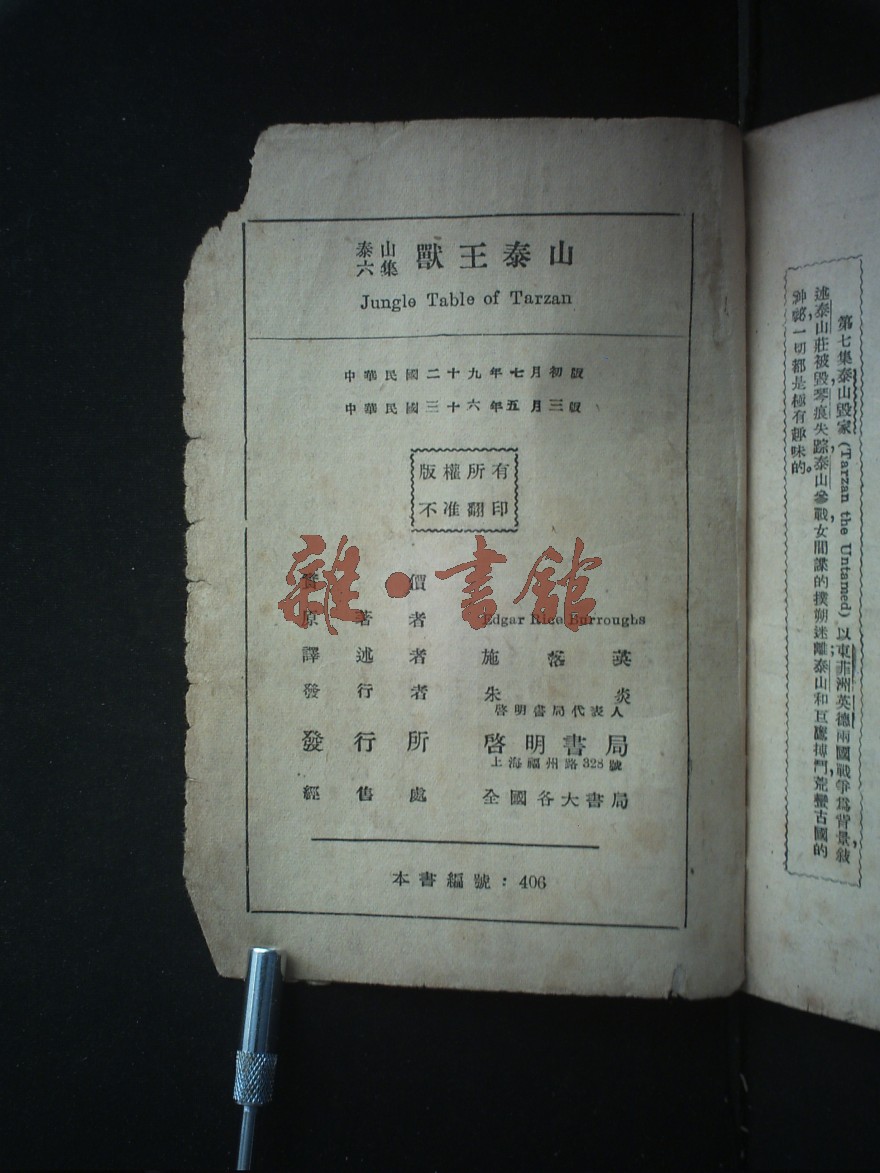 泰山六集 獸王泰山
Jungle Table of Tarzan
中華民國二十九年七月初版
中華民國三十六年五月三版
版權所有
不准翻印
實價
雜·書館
原著者 Edgar Rice Burroughs
譯述者 施落英
發行者 朱炎
啓明書局代表人
發行所 啓明書局
上海福州路328號
經售處 全國各大書局
本書編號：406
第七集泰山毀家(Tarzan the Untamed)以東非洲英德兩國戰爭爲背景，敍
述泰山莊被毀，琴痕失踪，泰山參戰，女間諜的撲朔迷離，泰山和巨鷹搏鬥，荒蠻古國的
神祕，一切都是極有趣味的。